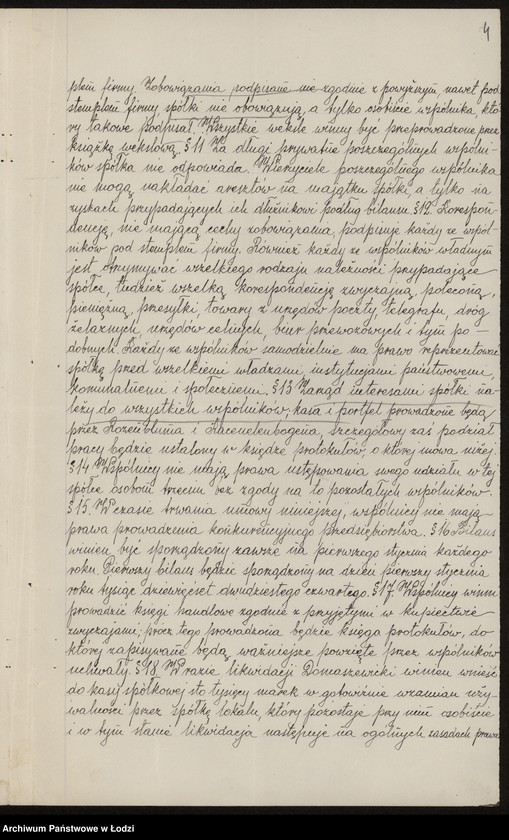 4
plem firmy. Zobowiązania podpisane nie zgodnie z powyższym, nawet pod
stemplem firmy spółki nie obowiązują, a tylko osobiście wspólnika, któ-
ry takowe podpisał. Wszystkie weksle winny być przeprowadzone przez
książkę wekslową. § 11 Za długi prywatne poszczególnych wspólni-
ków spółka nie odpowiada. Wierzyciele poszczególnego wspólnika
nie mogą nakładać aresztów na majątku spółki a tylko na
zyskach przypadających ich dłużnikowi podług bilansu. § 12. Korespon-
dencję, nie mającą cechy zobowiązania, podpisuje każdy ze wspól-
ników pod stemplem firmy. Również każdy ze wspólników władnym
jest otrzymywać wszelkiego rodzaju należności przypadające
spółce, tudzież wszelką korespondencję zwyczajną, poleconą,
pieniężną, przesyłki, towary z urzędów poczty, telegrafu, dróg
żelaznych, urzędów celnych, biur przewozowych i tym po-
dobnych. Każdy ze wspólników samodzielnie ma prawo reprezentować
spółkę przed wszelkiemi władzami, instytucjami państwowemi,
komunalnemi i społecznemi. § 13 Zarząd interesami spółki na-
leży do wszystkich wspólników; kasa i portfel prowadzone będą
przez Rozenbluma i Kacenelenbogena, szczegółowy zaś podział
pracy będzie ustalony w księdze protokułów, o której mowa niżej.
§ 14 Wspólnicy nie mają prawa ustępowania swego udziału w tej
spółce osobom trzecim bez zgody na to pozostałych wspólników.
§ 15. W czasie trwania umowy niniejszej, wspólnicy nie mają
prawa prowadzenia konkurencyjnego przedsiębiorstwa. § 16 Bilans
winien być sporządzony zawsze na pierwszego stycznia każdego
roku. Pierwszy bilans będzie sporządzony na dzień pierwszy stycznia
roku tysiąc dziewięćset dwudziestego czwartego. § 17. Wspólnicy winni
prowadzić księgi handlowe zgodnie z przyjętymi w kupiectwie
zwyczajami; prócz tego prowadzona będzie księga protokułów, do
której zapisywane będą ważniejsze powzięte przez wspólników
uchwały. § 18 W razie likwidacji Domaszewicki winien wnieść
do kasy spółkowej sto tysięcy marek w gotowiźnie wzamian uży-
walności przez spółkę lokalu, który pozostaje przy nim osobiście
i w tym stanie likwidacja następuje na ogólnych zasadach prawa
Archiwum Państwowe w Łodzi